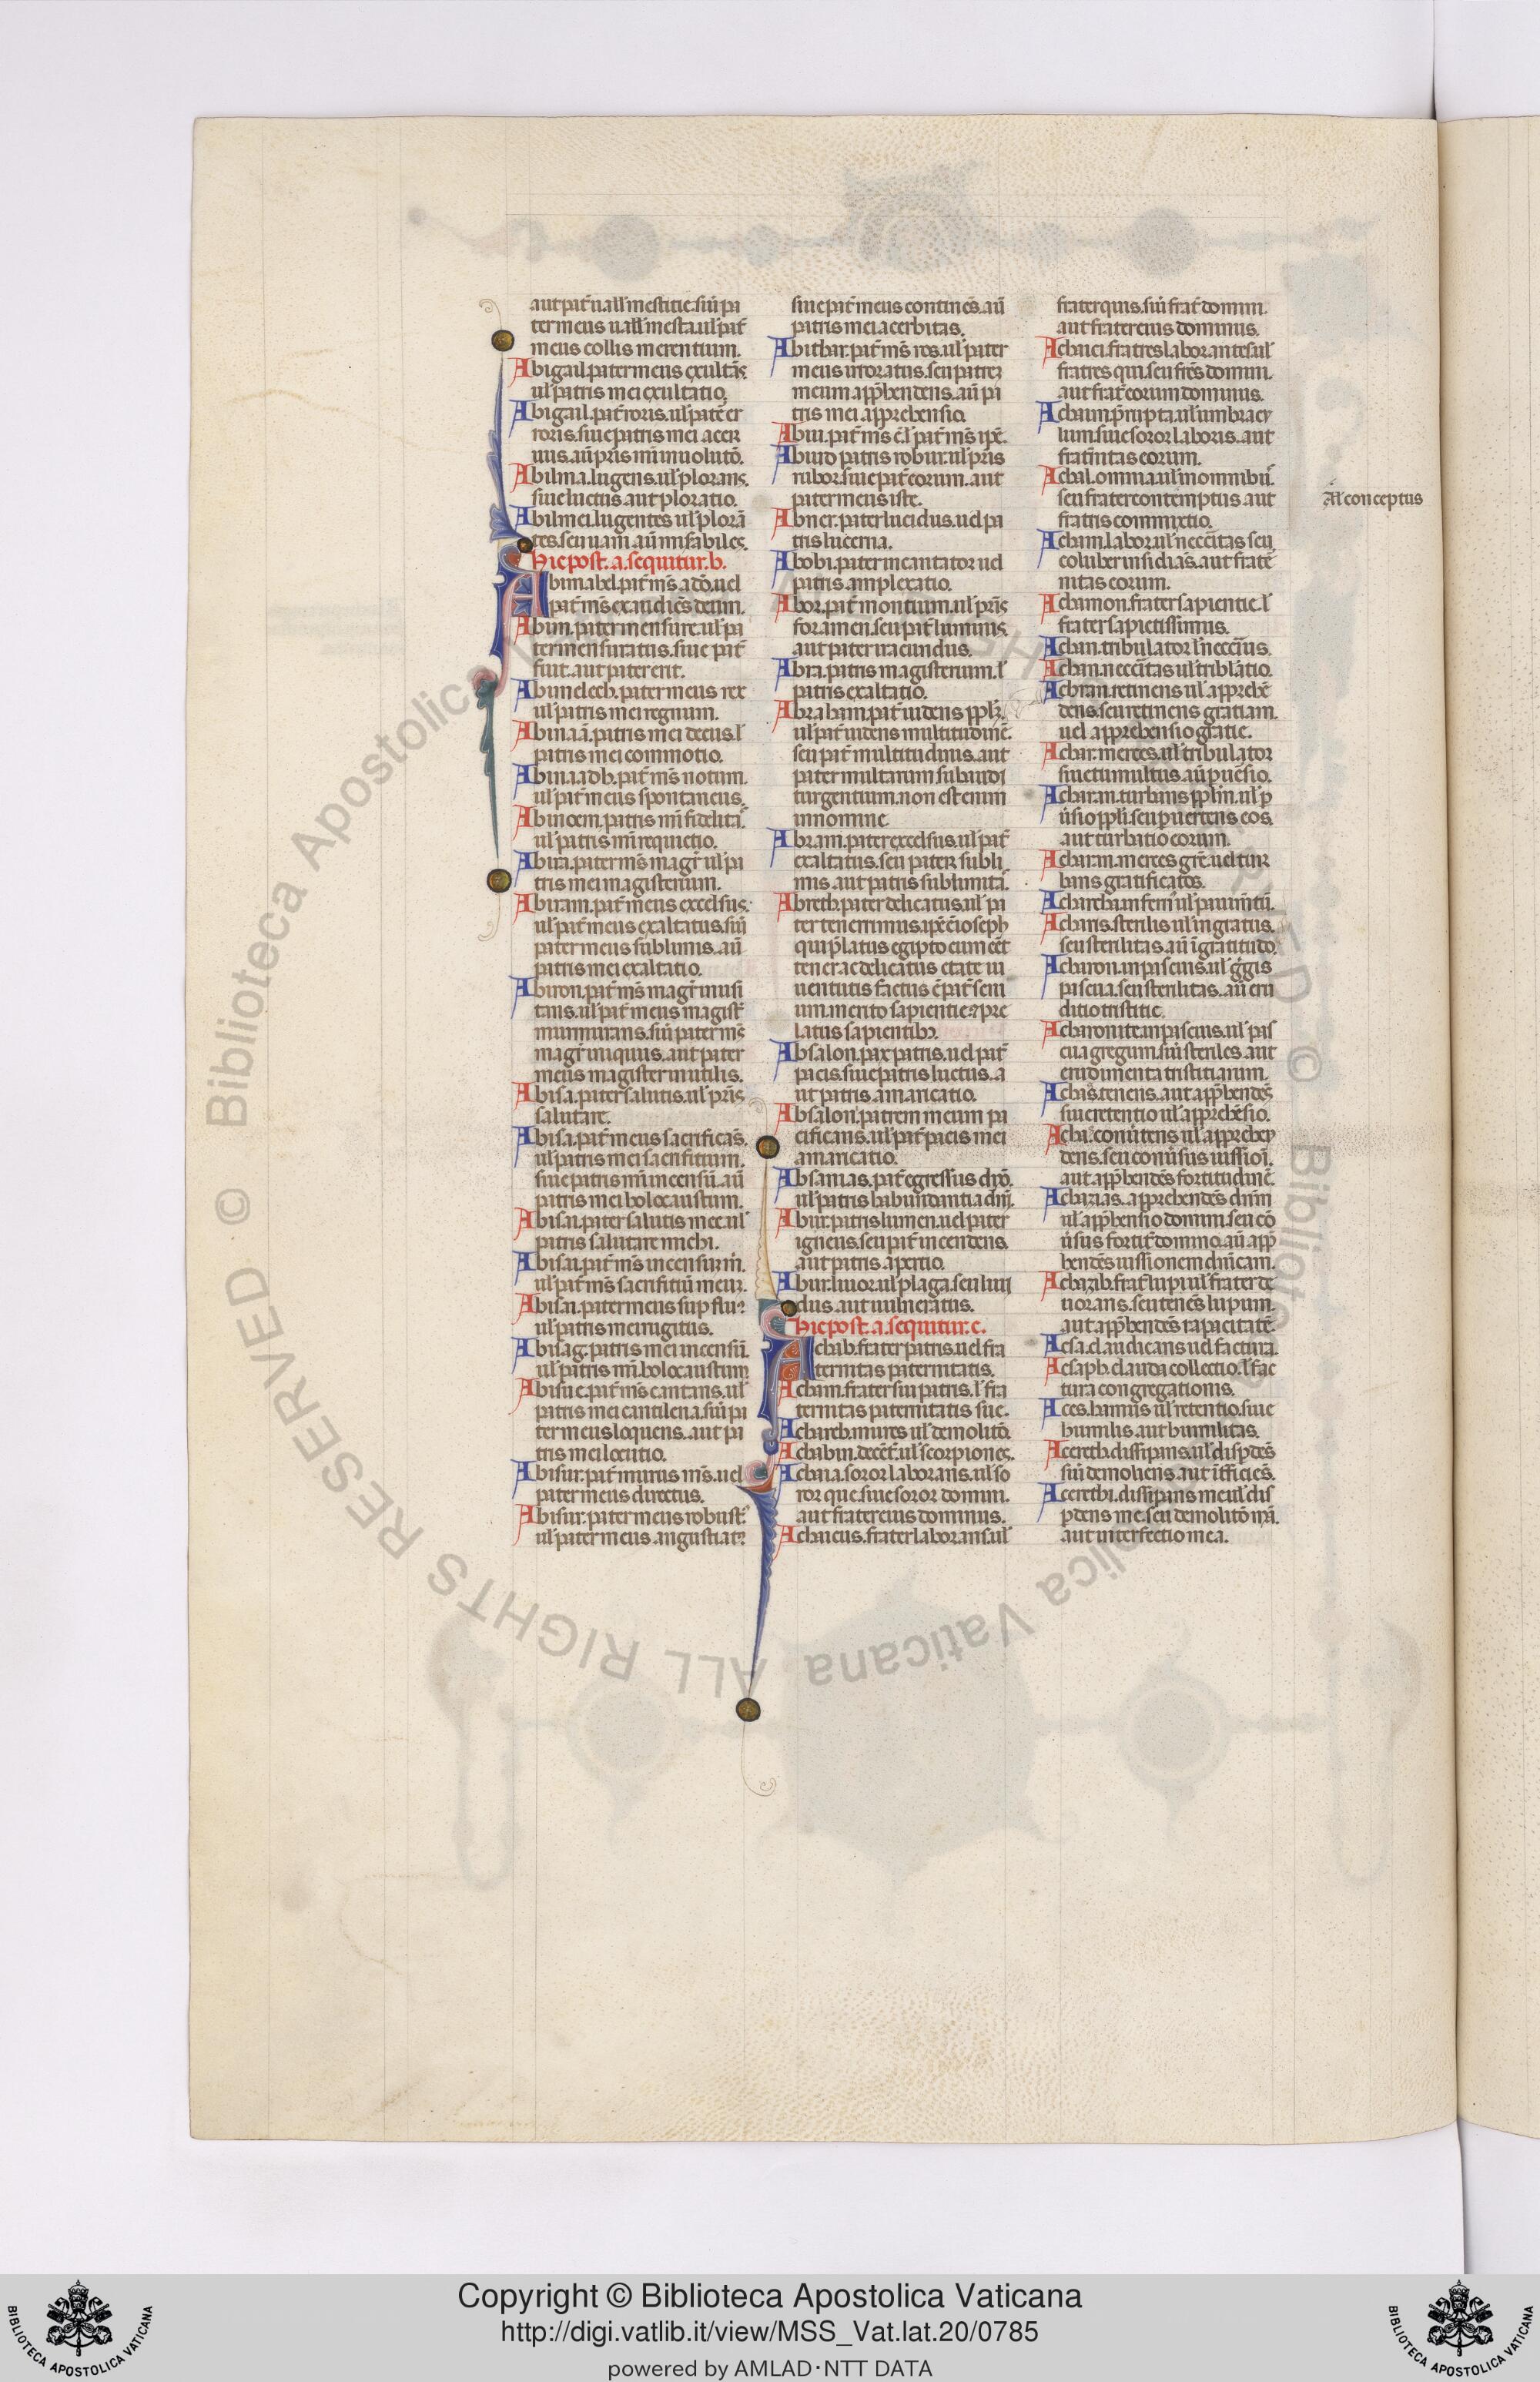 aut pat̄ uall̄ mestitie. siū pa
ter meus uall̄ mesta. ul̄ pat̄
meus collis merentium.
Abigail. pater meus exultās.
ul̄ patris mei exultatio.
Abigail. pat̄ roris. ul̄ pat̄ er
roris. siue patris mei acer
uus. aū pr̄is mī inuolutō.
Abilma. lugens. ul̄ plorans.
siue luctus. aut ploratio.
Abilmei. lugentes ul̄ plorā
tes. seu uani. aū mirabiles.
Hic post. a. sequitur. b.
Abimabel. pat̄ ms̄ a dō. uel
pat̄ ms̄ exaudiēs deum.
Abim. pater mensure. ul̄ pa
ter mensuratus. siue pat̄
fuit. aut pater erit.
Abimelech. pater meus rex
ul̄ patris mei regnum.
Abinaā. patris mei decus. l̄
patris mei commotio.
Abinadb. pat̄ ms̄ notum.
ul̄ pat̄ meus spontaneus.
Abinoem. patris mī fidelitā.
ul̄ patris mī requietio.
Abira. pater ms̄ magr̄ ul̄ pa
tris mei magisterium.
Abiram. pat̄ meus excelsus.
ul̄ pat̄ meus exaltatus. siū
pater meus sublimis. aū
patris mei exaltatio.
Abiron. pat̄ ms̄ magr̄ musi
tans. ul̄ pat̄ meus magist̄
murmurans. siū pater ms̄
magr̄ iniquus. aut pater
meus magister inutilis.
Abisa. pater salutis. ul̄ pr̄is
salutare.
Abisa. pat̄ meus sacrificās.
ul̄ patris mei sacrifitium.
siue patris mī incensū. aū
patris mei holocaustum.
Abisai. pater salutis mee. ul̄
patris salutare michi.
Abisai. pat̄ ms̄ incensum.
ul̄ pat̄ ms̄ sacrifitiū meuȝ.
Abisai. pater meus sup fluꝰ
ul̄ patris mei rugitus.
Abisag. patris mei incensū.
ul̄ patris mī. holocaustum
Abisue. pat̄ ms̄ cantans. ul̄
patris mei cantilena. siū pa
ter meus loquens. aut pa
tris mei locutio.
Abisur. pat̄ murus ms̄. uel
pater meus directus.
Abisur. pater meus robustꝰ.
ul̄ pater meus angustiatꝰ
siue pat̄ meus continēs. aū
patris mei acerbitas.
Abithar. pat̄ ms̄ ros. ul̄ pater
meus irroratus. seu patreȝ
meum app̄hendens. aū pa
tris mei apprehensio.
Abiu. pat̄ ms̄ ē. l̄ pat̄ ms̄ ip̄e.
Abiud patris robur. ul̄ pr̄is
rubor. siue pat̄ eorum. aut
pater meus iste.
Abner. pater lucidus. uel pa
tris lucerna.
Abobi. pater incantator uel
patris amplexatio.
Abor. pat̄ montium. ul̄ pr̄is
foramen. seu pat̄ luminis.
aut pater iracundus.
Abra. patris magisterium. l̄
patris exaltatio.
Abraham. pat̄ uidens ppl̄ȝ.
ul̄ pat̄ uidens multitudinē.
seu pat̄ multitudinis. aut
pater multarum subaudi
tur gentium. non est enim
in nomine
Abram. pater excelsus. ul̄ pat̄
exaltatus. seu pater subli
mis. aut patris sublimitā.
Abrech. pater delicatus. ul̄ pa
ter tenerrimus. ip̄e ē ioseph
qui p̄latus egipto cum eēt
tenerac delicatus etate iu
uentutis factus ē pat̄ seni
um. merito sapientie. ⁊ pre
latus sapientibȝ.
Absalon. pax patris. uel pat̄
pacis. siue patris luctus. a
ut patris amaricatio.
Absalon. patrem meum pa
cificans. ul̄ pat̄ pacis mei
amaricatio.
Absanias. pat̄ egressus dn̄ō.
ul̄ patris habundantia dn̄i.
Abur. patris lumen. uel pater
igneus. seu pat̄ incendens.
aut patris apertio.
Abur. liuor. ul̄ plaga. seu liui
dus. aut uulneratus.
Hic post. a. sequitur. c.
Achab. frater patris. uel fra
ternitas paternitatis.
Acham. frater sui patris. l̄ fra
ternitas paternitatis sue.
Achareb. mures ul̄ demolitō.
Achabin. decēt̄. ul̄ scorpiones.
Achaia. soror laborans. ul̄ so
ror que. siue soror domini.
aut frater eius dominus.
Achaicus. frater laborans. ul̄
frater quis. siū frat̄ domini.
aut frater eius dominus.
Achaici. fratres laborantes. ul̄
fratres qui. seu frēs domini.
aut frat̄ eorum dominus.
Achaim. p̄rupta. ul̄ umbracu
lum. siue soror laboris. aut
frat̄nitas eorum.
Achal. omnia. ul̄ in omnibꝰ.
seu frater contemptus aut
fratris commixtio.
Al̄ conceptus
Acham. labor. ul̄ neccītas seu
coluber insidiās. aut fratē
nitas eorum.
Achamon. frater sapientie. l̄
frater sapiētissimus.
Achan. tribulator l̄ neccīus.
Achan. neccītas ul̄ tribl̄atio.
Achran. retinens ul̄ apprehē
dens. seu retinens gratiam.
uel apprehensio gratie.
Achar. merces. ul̄ tribulator
siue tumultus. aū p̄uersio.
Acharam. turbans ppl̄m. ul̄ p
ūsio ppl̄i. seu p̄uertens eos.
aut turbatio eorum.
Acharan. merces grē. uel tur
bans gratificatos.
Achareba. infern̄ ul̄ pauim̄tū.
Acharis. sterilis ul̄ ingratus.
seu sterilitas. aū īgratitudo.
Acharon. in pascuis. ul̄ ḡgis
pascua. seu sterilitas. aū eru
ditio tristitie.
Acharonite. in pascuis. ul̄ pas
cua gregum. siū steriles. aut
erudimenta tristitiarum.
Achas. tenens. aut app̄hendēs
siue retentio ul̄ apprehēsio.
Achaȝ. conūtens ul̄ apprehen
dens. seu conūsus iussiōi.
aut app̄hendēs fortitudinē.
Achazias. apprehendēs dn̄m
ul̄ app̄hensio domini. seu cō
ūsus fortit̄ domino. aū app̄
hendēs iussionem dn̄icam.
Achazib. frat̄ lupi ul̄ frater de
uorans. seu tenēs lupum.
aut app̄hendēs rapacitatē.
Acsa. claudicans uel factura.
Acsaph. clauda collectio. l̄ fac
tura congregationis.
Aces. hamus ul̄ retentio. siue
humilis. aut humilitas.
Acereth. dissipans. ul̄ disp̄dēs
siū demoliens. aut īt̄ficiēs.
Acerethi. dissipans me ul̄ dis
p̄dens me. seu demolitō m̄a.
aut interfectio mea.
Copyright © Biblioteca Apostolica Vaticana
http://digi.vatlib.it/view/MSS_Vat.lat.20/0785
powered by AMLAD·NTT DATA
BIBLIOTECA APOSTOLICA VATICANA
BIBLIOTECA APOSTOLICA VATICANA
© Biblioteca Apostolica Vaticana ALL RIGHTS RESERVED
© Biblioteca Apostolica Vaticana ALL RIGHTS RESERVED